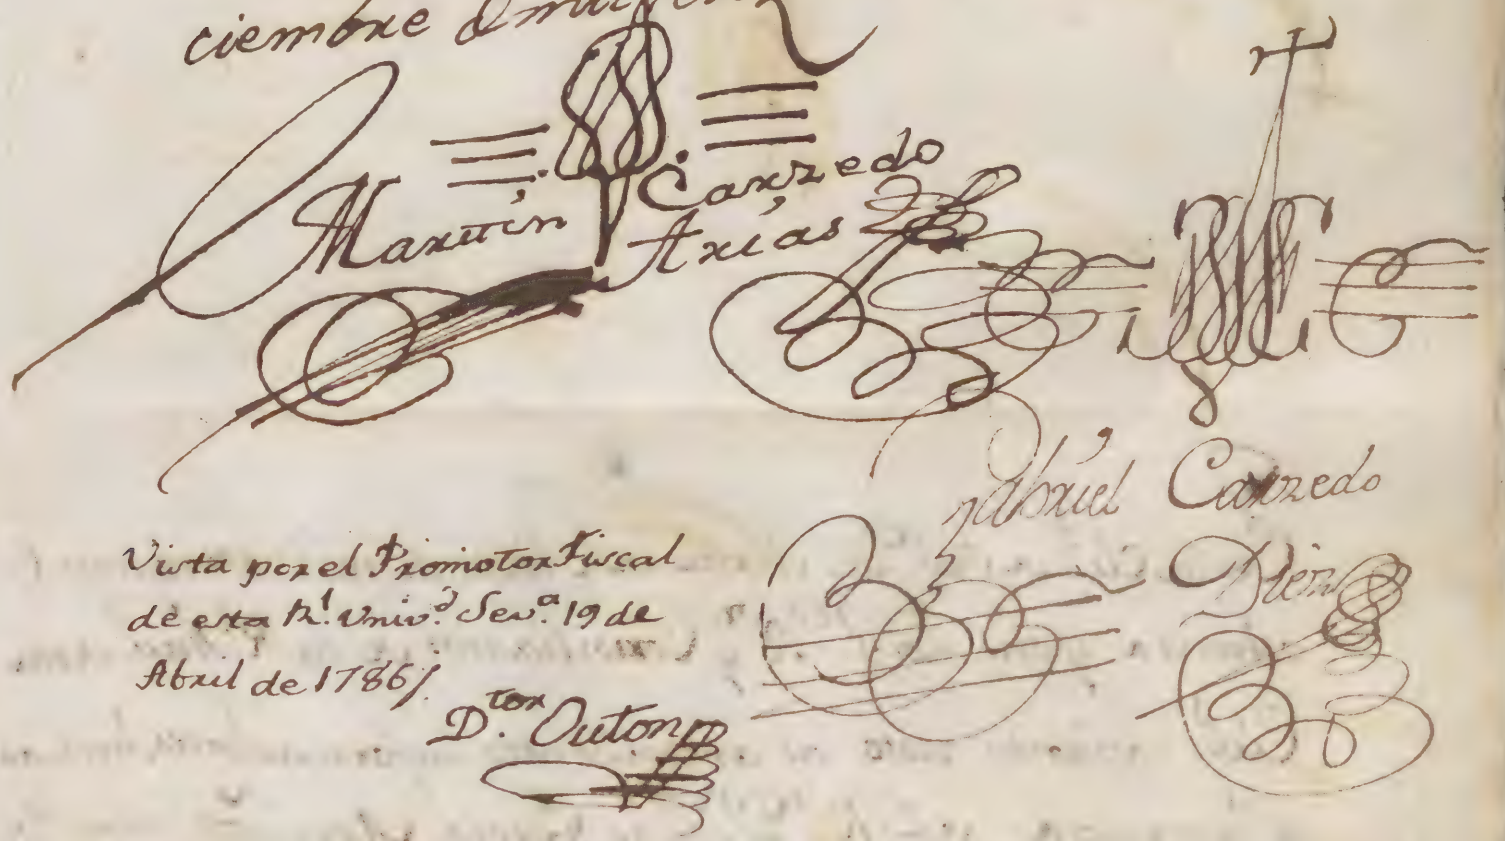 ciembre de mil
Martin Carzedo
Arias
Gabriel Carzedo
Diem
Vista por el Promotor Fiscal
de esta Rl. Univd. Sevª. 19 de
Abril de 1786/.
D.tor Outon